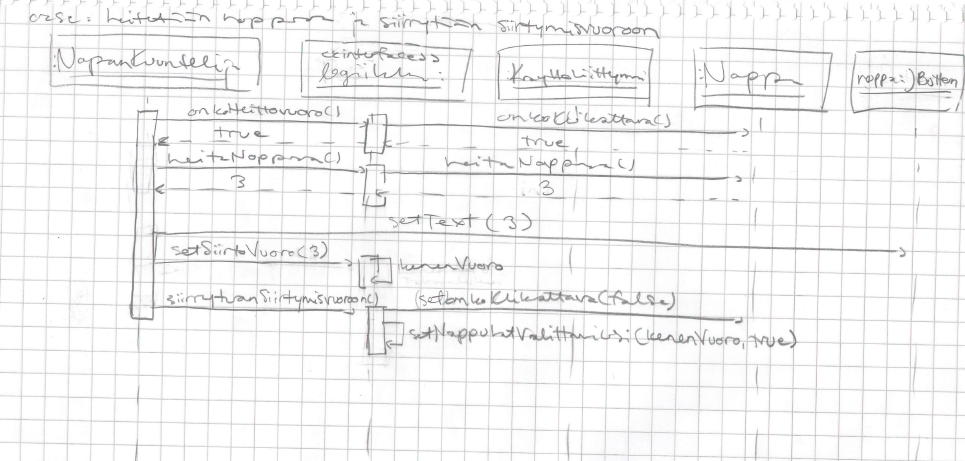 case: heitetään noppaa ja siirrytään siirtymisvuoroon
:NapanKuuntelija
<<interface>>
logiikka:
Käyttöliittymä
:Noppa
noppa:JButton
onkoHeittovuoro()
onkoKlikattava()
true
true
heitaNoppaa()
heitaNoppaa()
3
3
setText(3)
setSiirtoVuoro(3)
kenenVuoro
siirrytaanSiirtymisvuoroon()
(setonkoKlikattava(false)
setNappulatValittaviksi(kenenVuoro, true)